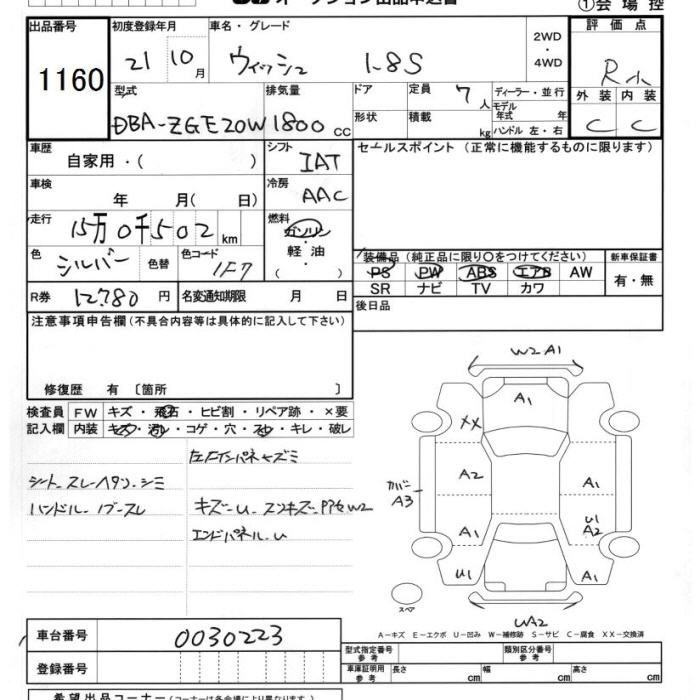 オークション出品申込書
①会場控
出品番号 1160
初度登録年月 21 10月
車名・グレード ウィッシュ 1.8S
2WD・4WD
評価点 R小
型式 DBA-ZGE20W
排気量 1800 cc
ドア 形状
定員 7人
積載 kg
ディーラー・並行
モデル年式 年式
ハンドル 左・右
外装 C
内装 C
車歴 自家用・( )
シフト IAT
セールスポイント (正常に機能するものに限ります)
車検 年 月( 日)
冷房 AAC
走行 15万0千502 km
燃料 ガソリン・軽油・( )
色 シルバー 色替
色コード 1F7
装備品(純正品に限り○をつけてください)
PS PW ABS エアB AW
SR ナビ TV カワ
新車保証書 有・無
R券 12780 円
名変通知期限 月 日
後日品
注意事項申告欄(不具合内容等は具体的に記入して下さい)
修復歴 有 〔箇所 〕
検査員記入欄
FW キズ・飛石・ヒビ割・リペア跡・×要
内装 キズ・汚レ・コゲ・穴・スレ・キレ・破レ
シート スレ-ヘタリ-シミ
ハンドル-ノブ-スレ
左Fインパネキズミ
エンドパネル-U
W2 A1
A1
XX
A2
カバー A3
A1
U1
A1
U1
A2
A1
スペア
UA2
A−キズ E−エクボ U−凹み W−補修跡 S−サビ C−腐食 XX−交換済
車台番号 0030223
型式指定番号 参考
類別区分番号 参考
登録番号
車庫証明用 参考 長さ cm 幅 cm 高さ cm
希望出品コーナー(コーナーは各会場により異なります。)